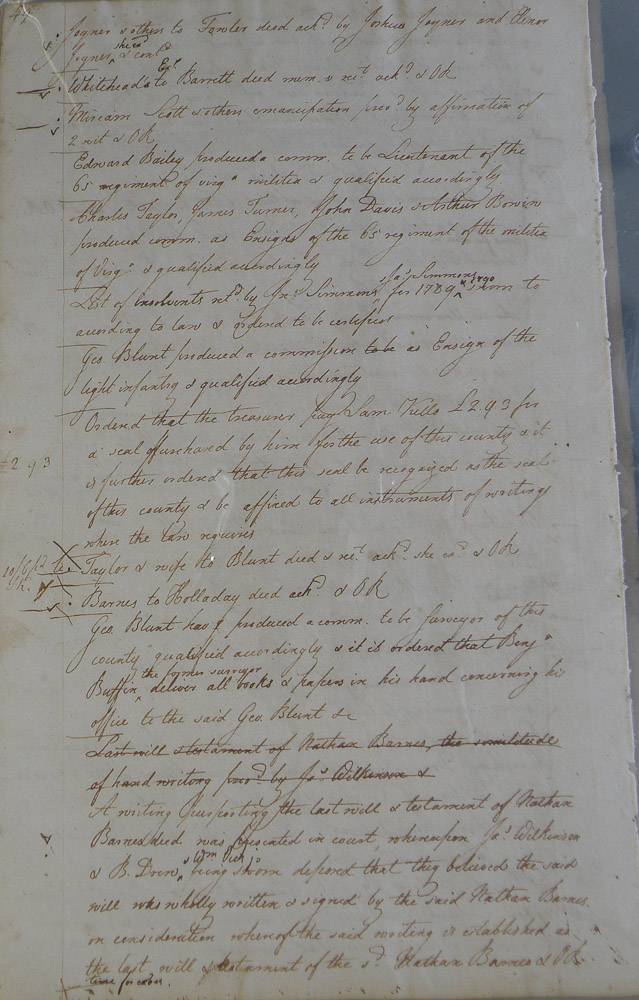 Joyner & others to Fowler deed ackd. by Joshua Joyner and Elenor
Joyner, she ex & contd.
Whitehead to Barrett deed mem. & rect. ackd & OR
Miriam Scott & others emancipation provd by affirmation of
2 wit & OR
Edward Bailey produced a comm. to be Lieutenant of the
65 regiment of virga militia & qualified accordingly
Charles Taylor, James Turner, John Davis & Arthur Bowin
produced comm. as Ensigns of the 65 regiment of the militia
of Virga & qualified accordingly
List of Insolvents retd by Jno Simmons & Jas. Simmons for 1789 & 1790 sworn to
according to law & ordered to be certified
Geo. Blunt produced a commission to be as Ensign of the
light infantry & qualified accordingly
Ordered that the treasurer pay Sam. Kello £2.9.3 for
a seal purchased by him for the use of this county & it
2 9 3
is further ordered that this seal be recognized as the seal
of this county & be affixed to all instruments of writing
when the law requires
Taylor & wife to Blunt deed & rect. ackd. she ex & OR
Barnes to Holladay deed ackd & OR
Geo. Blunt having produced a comm. to be Surveyor of this
county qualified accordingly & it is ordered that Benja
Ruffin the former surveyor deliver all books & papers in his hand concerning his
office to the said Geo. Blunt &c
Last will & testament of Nathan Barnes, the similitude
of hand writing provd by Jas Wilkinson &
A writing purporting the last will & testament of Nathan
Barnes decd was presented in court whereupon Jas Wilkinson
& B. Drew, & Wm being sworn deposed that they believed the said
will was wholly written & signed by the said Nathan Barnes
on consideration whereof the said writing is established as
the last will & testament of the sd Nathan Barnes & OR
time for exors.